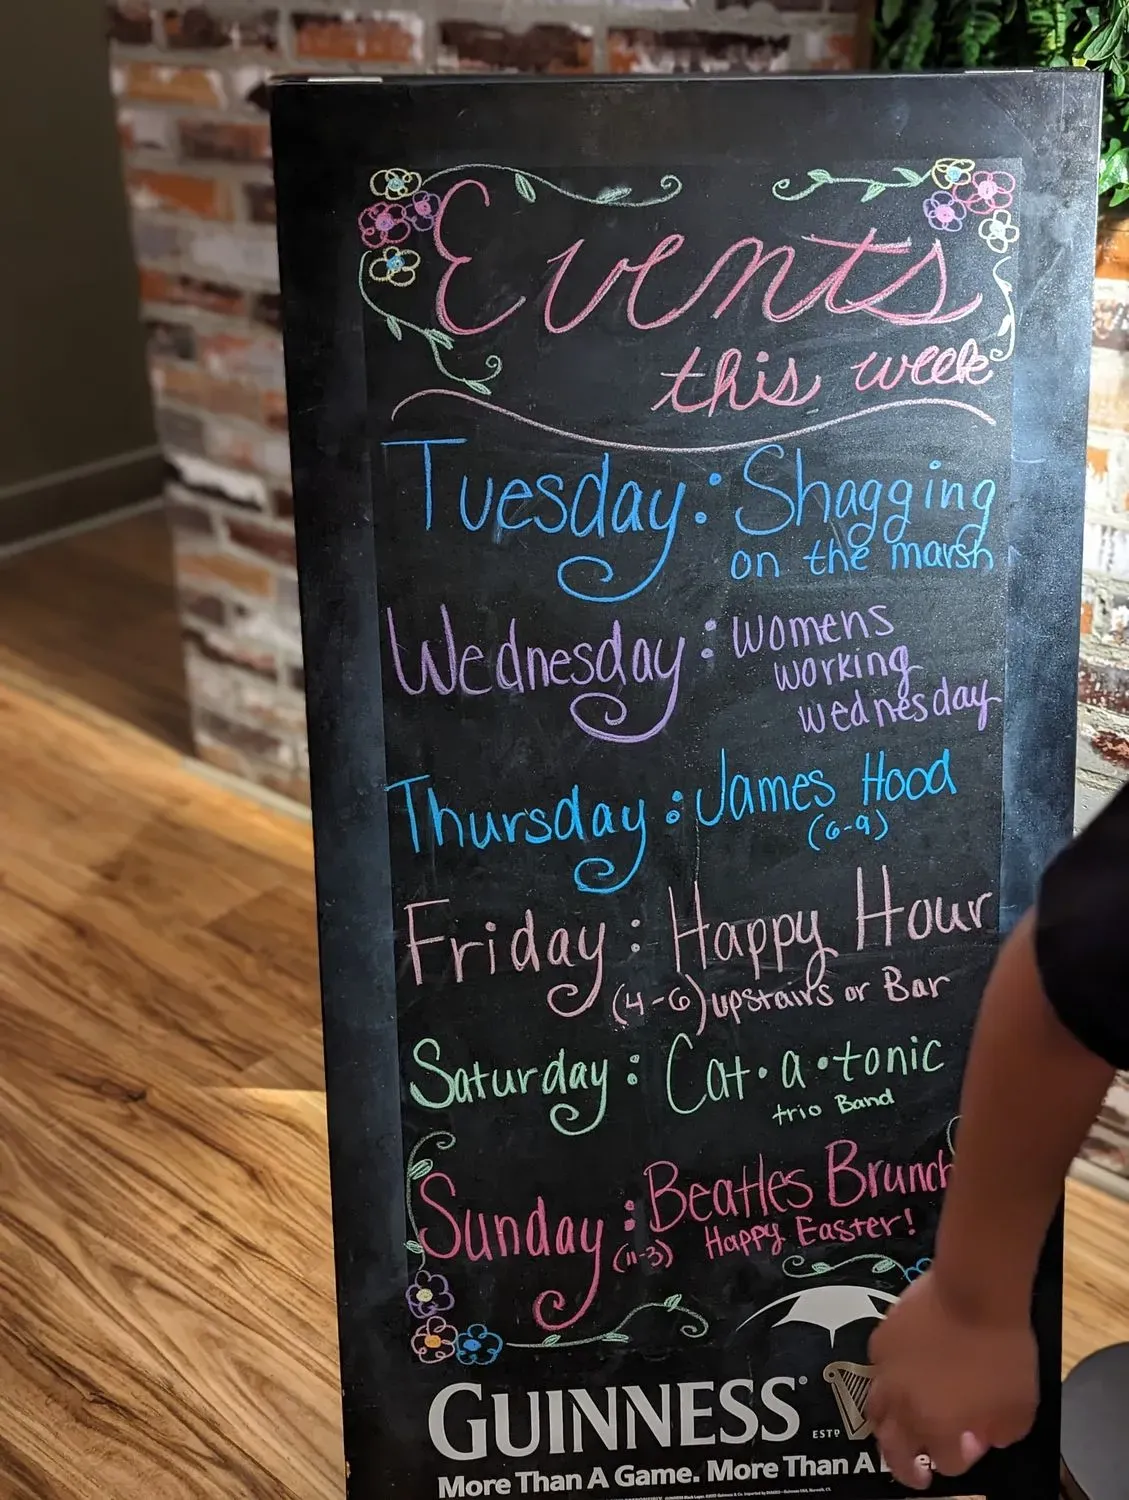 Events
this week
Tuesday: Shagging
on the marsh
Wednesday: womens
working
wednesday
Thursday: James Hood
(6-9)
Friday: Happy Hour
(4-6) upstairs or Bar
Saturday: Cat•a•tonic
trio Band
Sunday: Beatles Brunch
(11-3) Happy Easter!
GUINNESS
ESTD
More Than A Game. More Than A